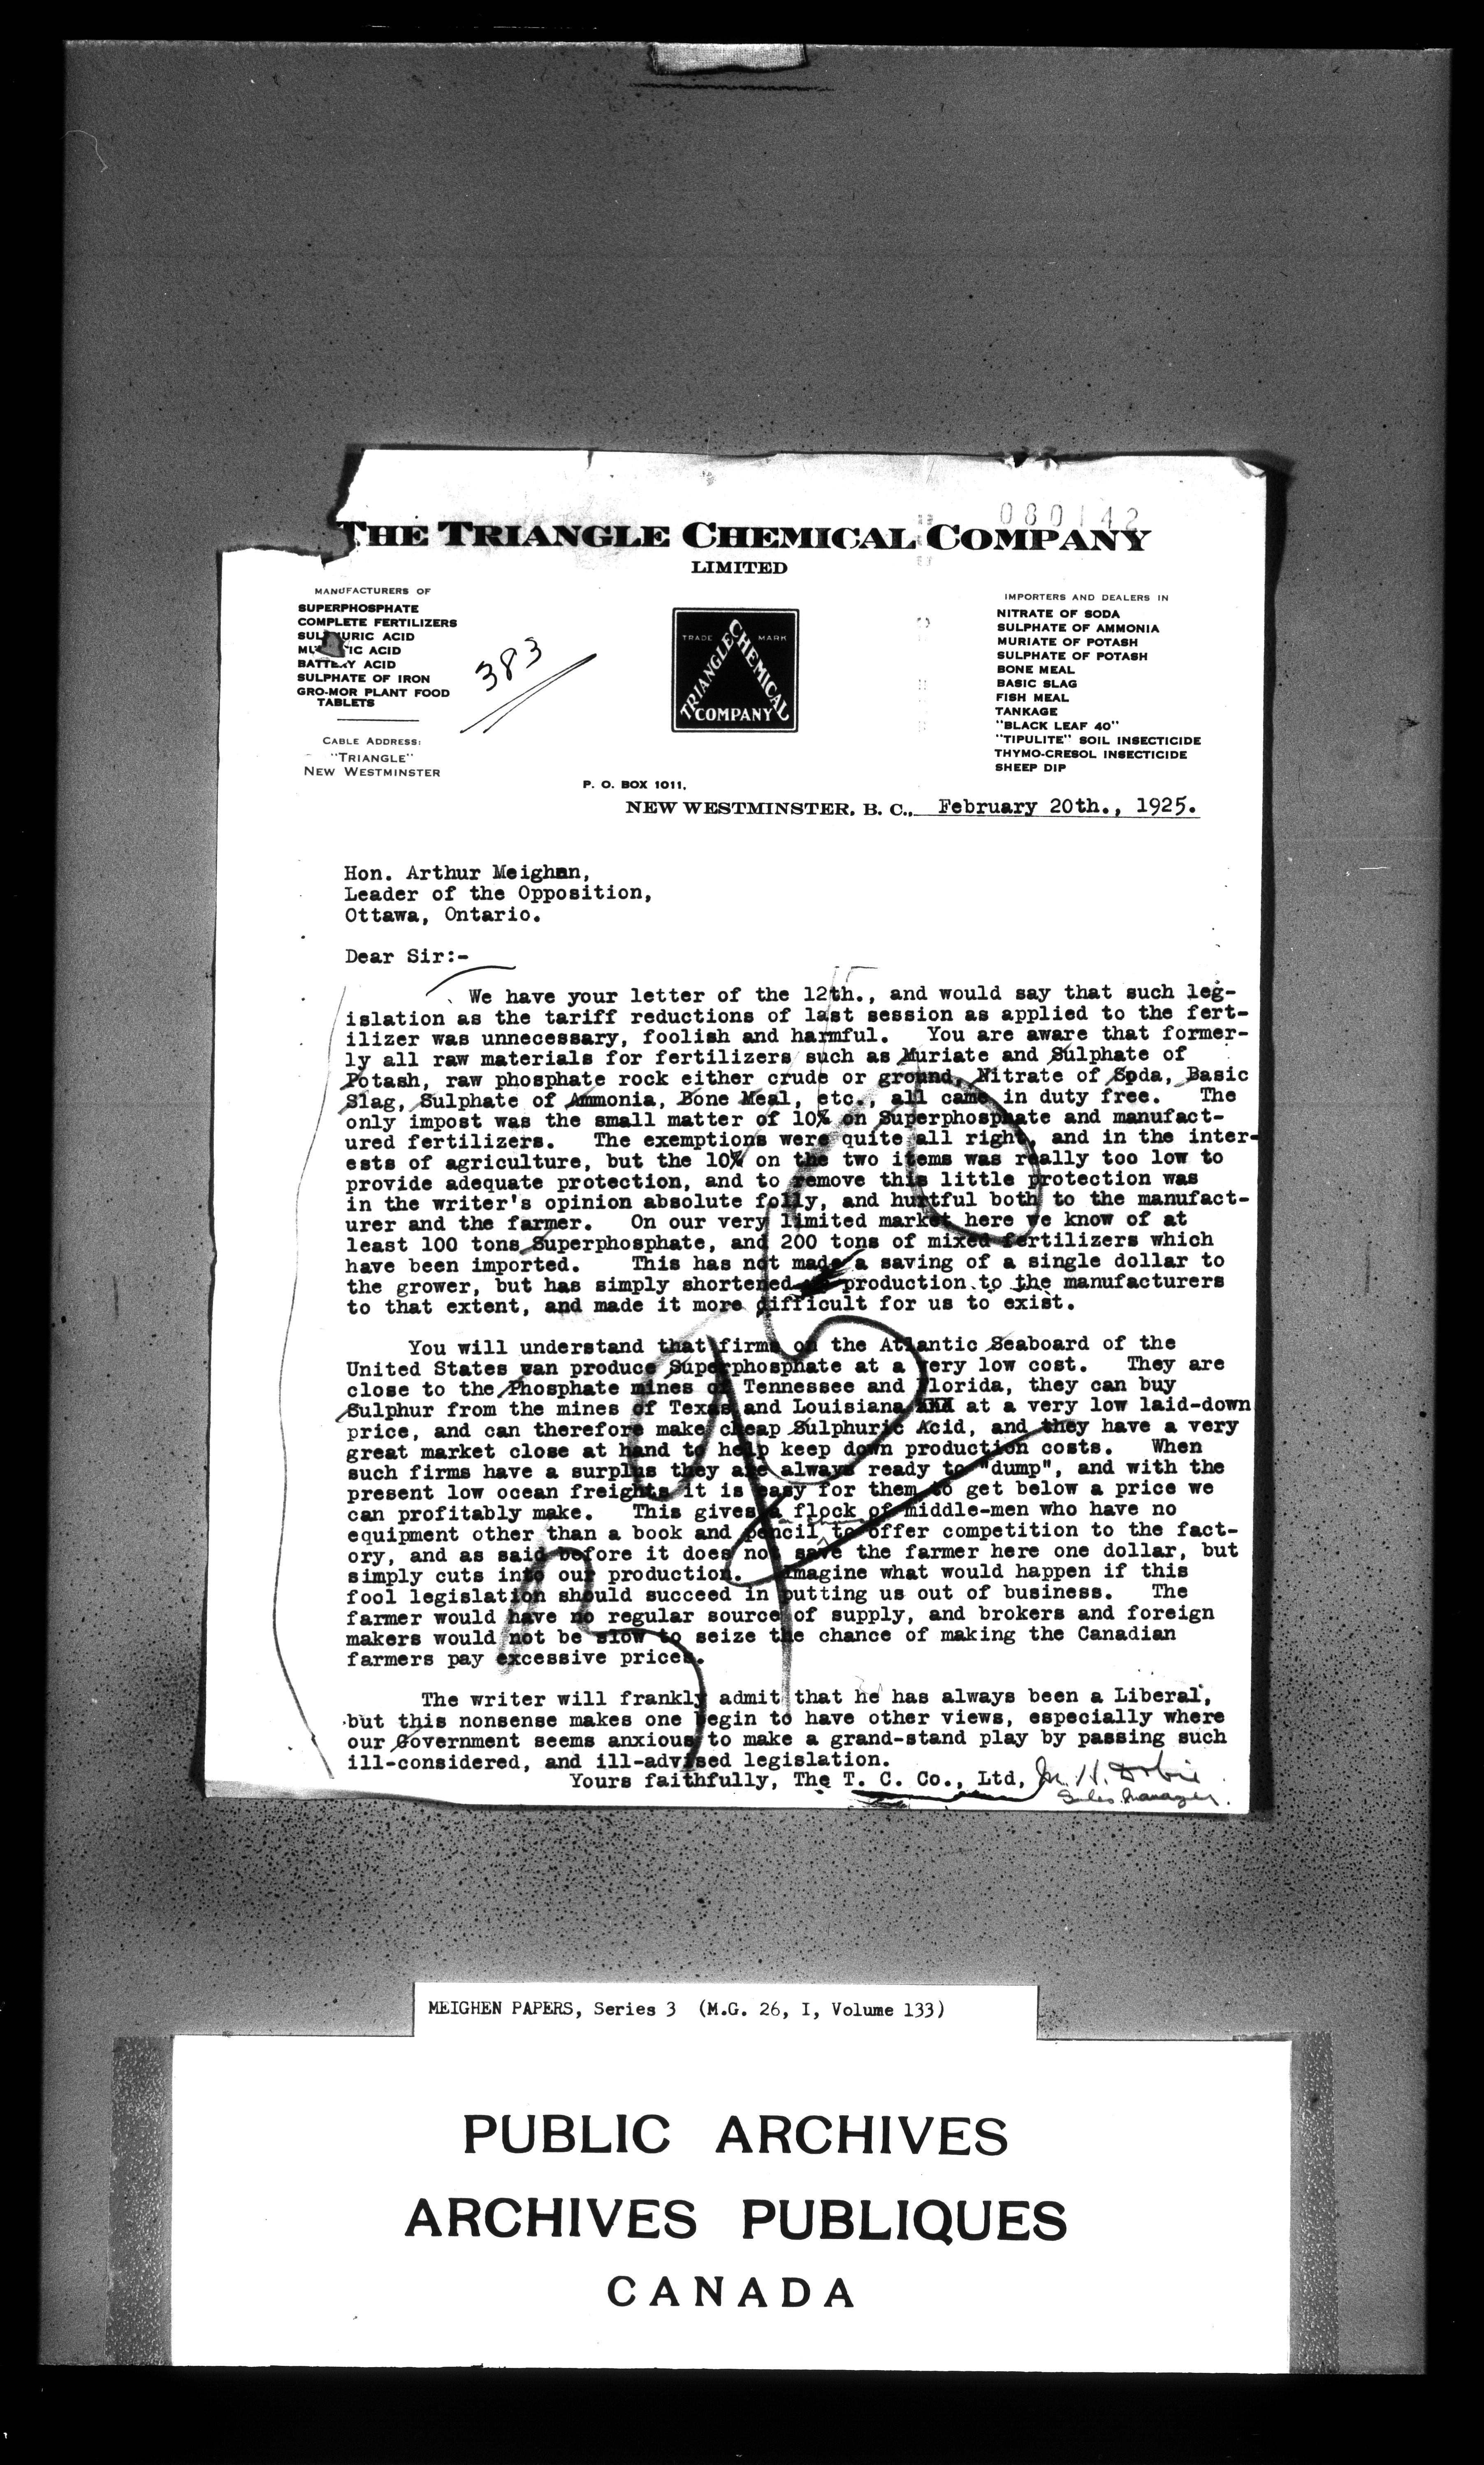 080142
THE TRIANGLE CHEMICAL COMPANY
LIMITED
MANUFACTURERS OF
SUPERPHOSPHATE
COMPLETE FERTILIZERS
SULPHURIC ACID
MU IC ACID
BATTERY ACID
SULPHATE OF IRON
GRO-MOR PLANT FOOD
TABLETS
CABLE ADDRESS:
"TRIANGLE"
NEW WESTMINSTER
383
TRADE MARK
TRIANGLE CHEMICAL
COMPANY
IMPORTERS AND DEALERS IN
NITRATE OF SODA
SULPHATE OF AMMONIA
MURIATE OF POTASH
SULPHATE OF POTASH
BONE MEAL
BASIC SLAG
FISH MEAL
TANKAGE
"BLACK LEAF 40"
"TIPULITE" SOIL INSECTICIDE
THYMO-CRESOL INSECTICIDE
SHEEP DIP
P. O. BOX 1011,
NEW WESTMINSTER, B. C., February 20th., 1925.
Hon. Arthur Meighen,
Leader of the Opposition,
Ottawa, Ontario.
Dear Sir:-
We have your letter of the 12th., and would say that such leg-
islation as the tariff reductions of last session as applied to the fert-
ilizer was unnecessary, foolish and harmful. You are aware that former-
ly all raw materials for fertilizers such as Muriate and Sulphate of
Potash, raw phosphate rock either crude or ground, Nitrate of Soda, Basic
Slag, Sulphate of Ammonia, Bone Meal, etc., all came in duty free. The
only impost was the small matter of 10% on Superphosphate and manufact-
ured fertilizers. The exemptions were quite all right, and in the inter-
ests of agriculture, but the 10% on the two items was really too low to
provide adequate protection, and to remove this little protection was
in the writer's opinion absolute folly, and hurtful both to the manufact-
urer and the farmer. On our very limited market here we know of at
least 100 tons Superphosphate, and 200 tons of mixed fertilizers which
have been imported. This has not made a saving of a single dollar to
the grower, but has simply shortened production to the manufacturers
to that extent, and made it more difficult for us to exist.
You will understand that firms on the Atlantic Seaboard of the
United States can produce Superphosphate at a very low cost. They are
close to the Phosphate mines of Tennessee and Florida, they can buy
Sulphur from the mines of Texas and Louisiana at a very low laid-down
price, and can therefore make cheap Sulphuric Acid, and they have a very
great market close at hand to help keep down production costs. When
such firms have a surplus they are always ready to "dump", and with the
present low ocean freights it is easy for them to get below a price we
can profitably make. This gives a flock of middle-men who have no
equipment other than a book and pencil to offer competition to the fact-
ory, and as said before it does not save the farmer here one dollar, but
simply cuts into our production. Imagine what would happen if this
fool legislation should succeed in putting us out of business. The
farmer would have no regular source of supply, and brokers and foreign
makers would not be slow to seize the chance of making the Canadian
farmers pay excessive prices.
The writer will frankly admit that he has always been a Liberal,
but this nonsense makes one begin to have other views, especially where
our Government seems anxious to make a grand-stand play by passing such
ill-considered, and ill-advised legislation.
Yours faithfully, The T. C. Co., Ltd, H. Dobie
Sales Manager.
MEIGHEN PAPERS, Series 3 (M.G. 26, I, Volume 133)
PUBLIC ARCHIVES
ARCHIVES PUBLIQUES
CANADA